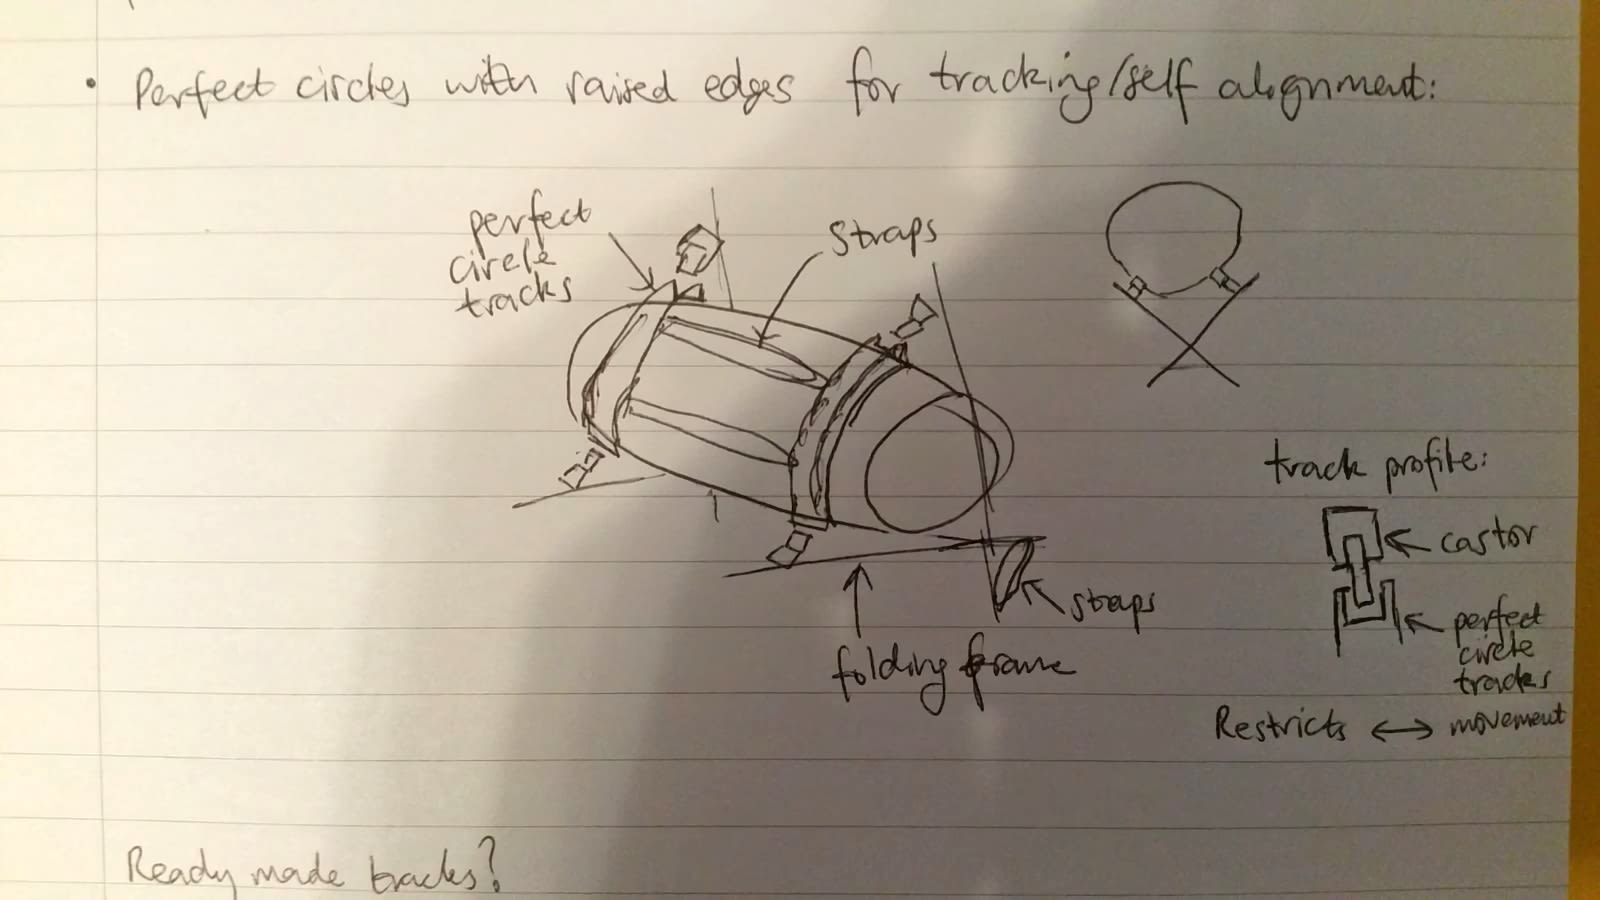 • Perfect circles with raised edges for tracking/self alignment:
perfect
circle
tracks
Straps
straps
folding frame
track profile:
castor
perfect
circle
tracks
Restricts ↔ movement
Ready made tracks?